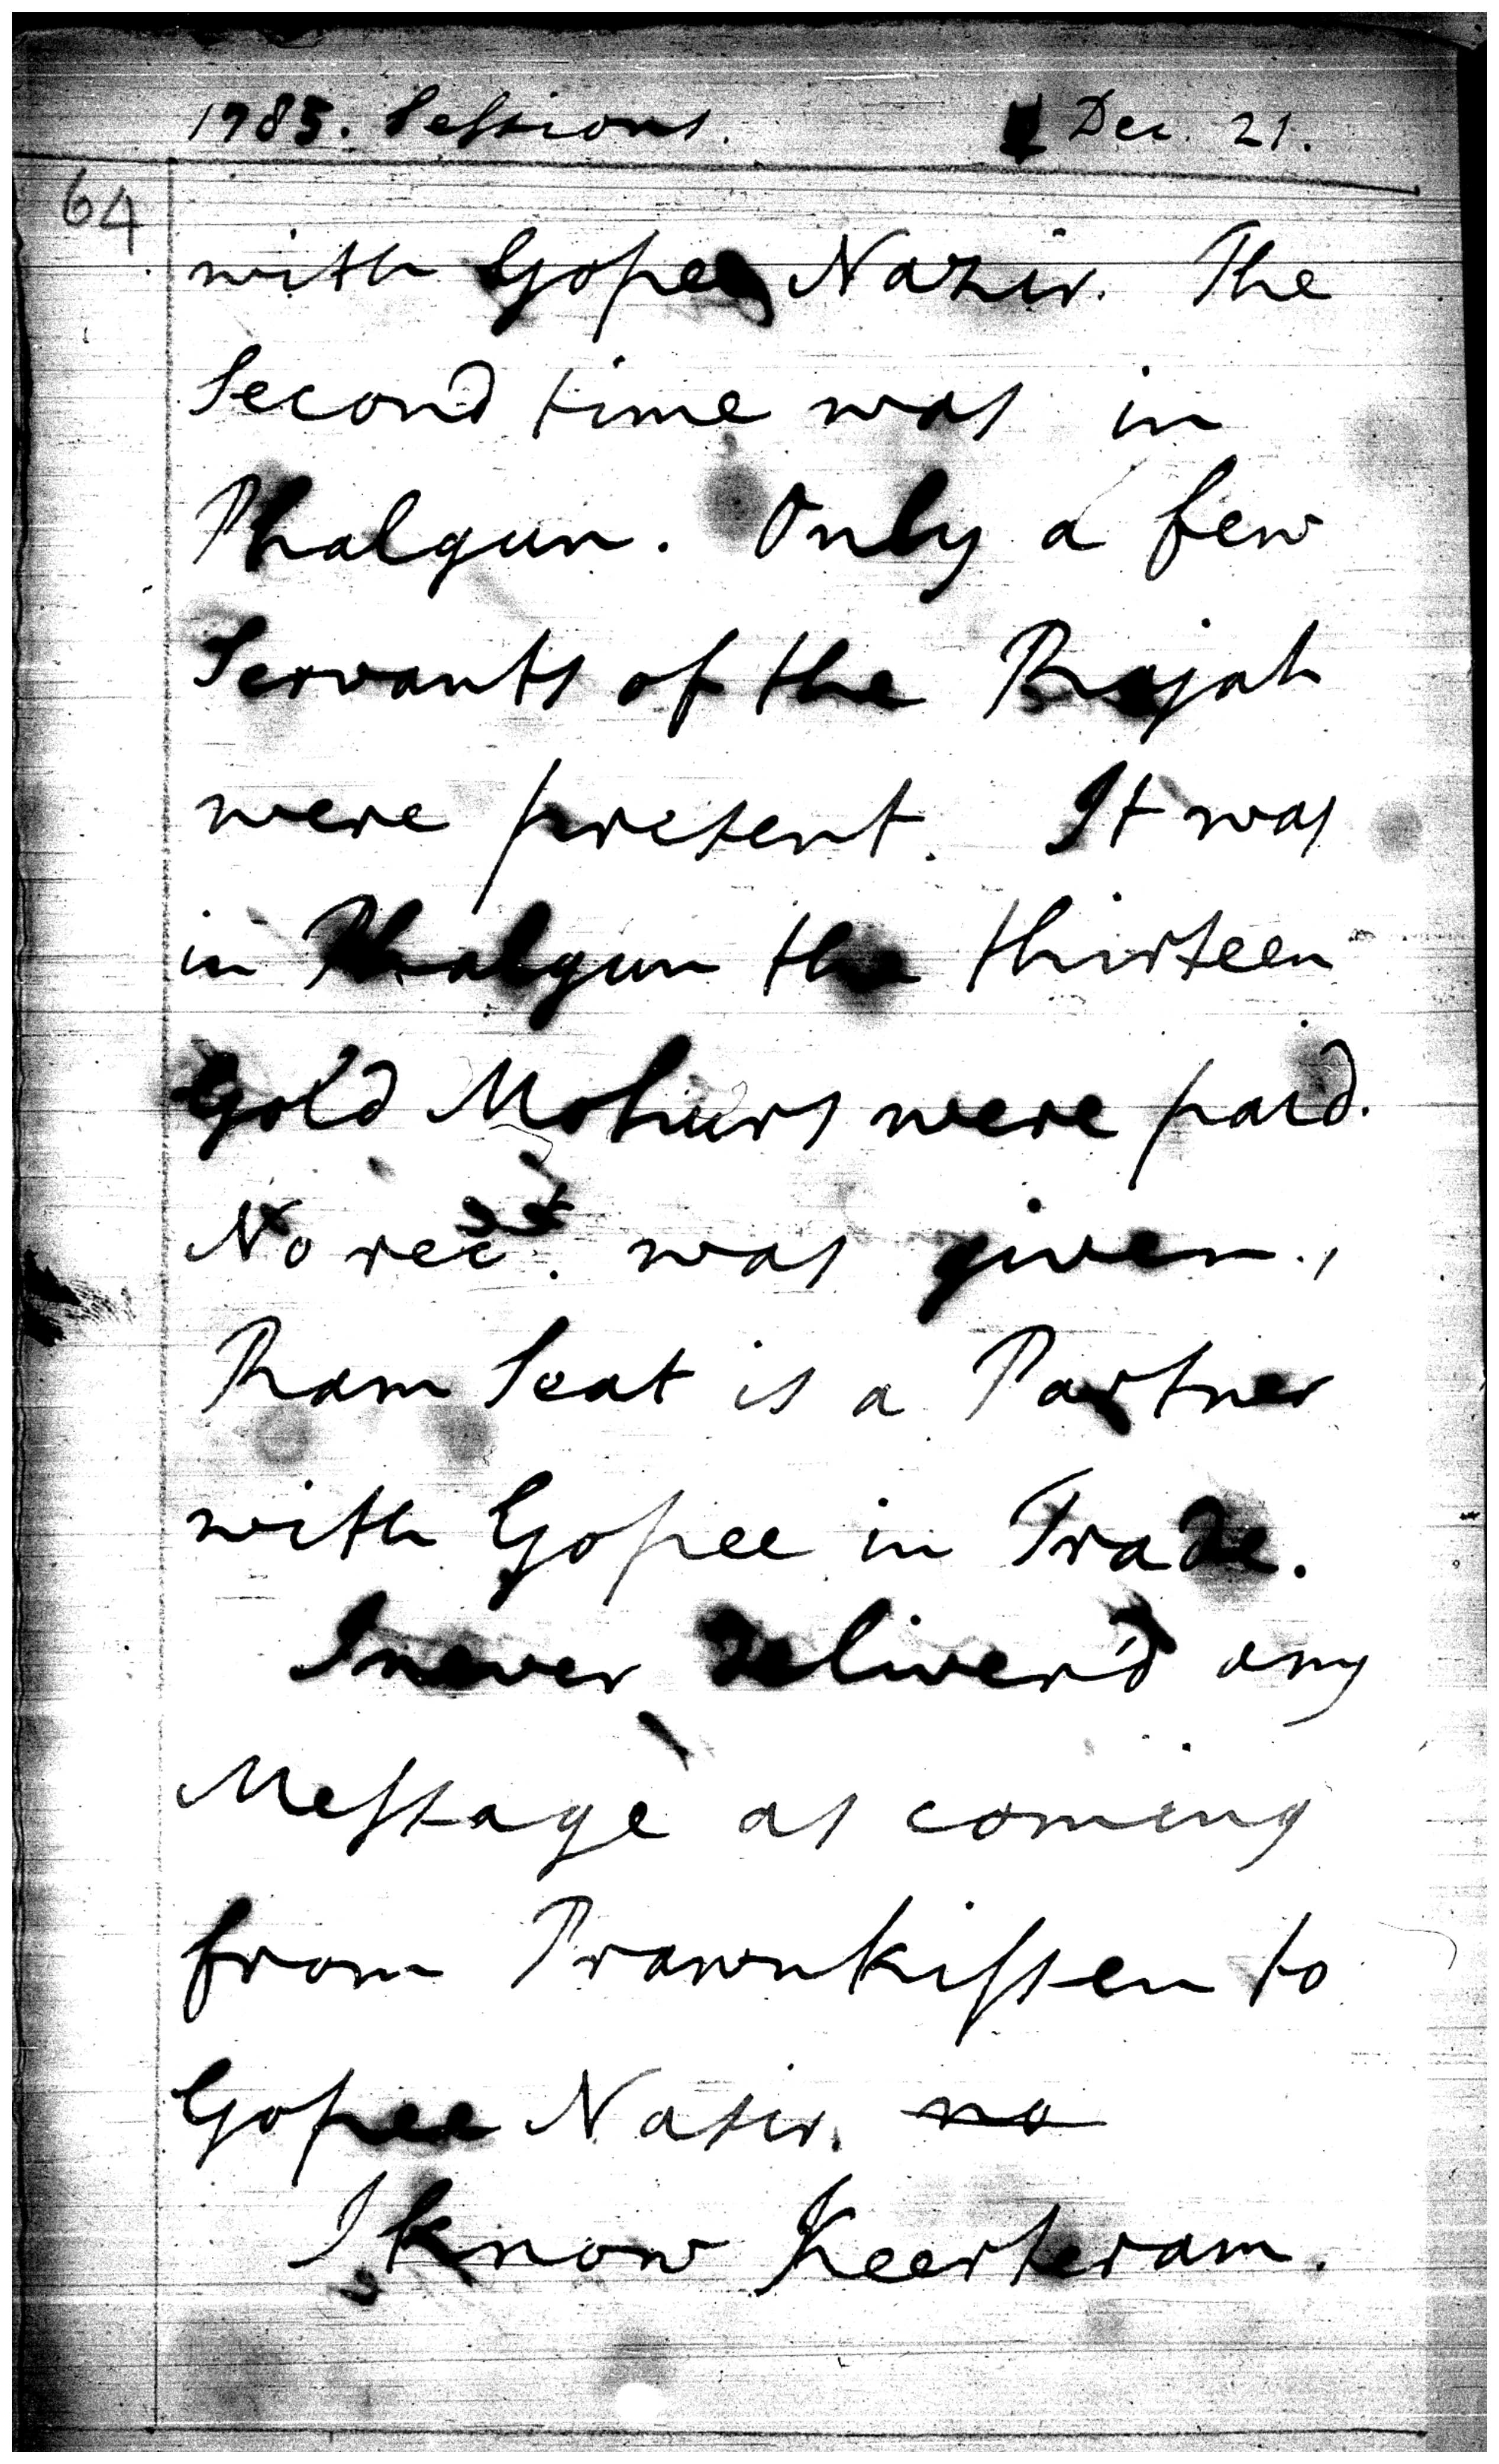 1785. Sessions. Dec. 21.
64
with Gopee Nazir. The
Second time was in
Phalgun. Only a few
Servants of the Rajah
were present. It was
in Phalgun the thirteen
Gold Mohurs were paid.
No rect. was given.,
Ram Seat is a Partner
with Gopee in Trade.
I never deliver'd any
Message as coming
from Prawnkissen to
Gopee Nasir. no
I know Keerteram.